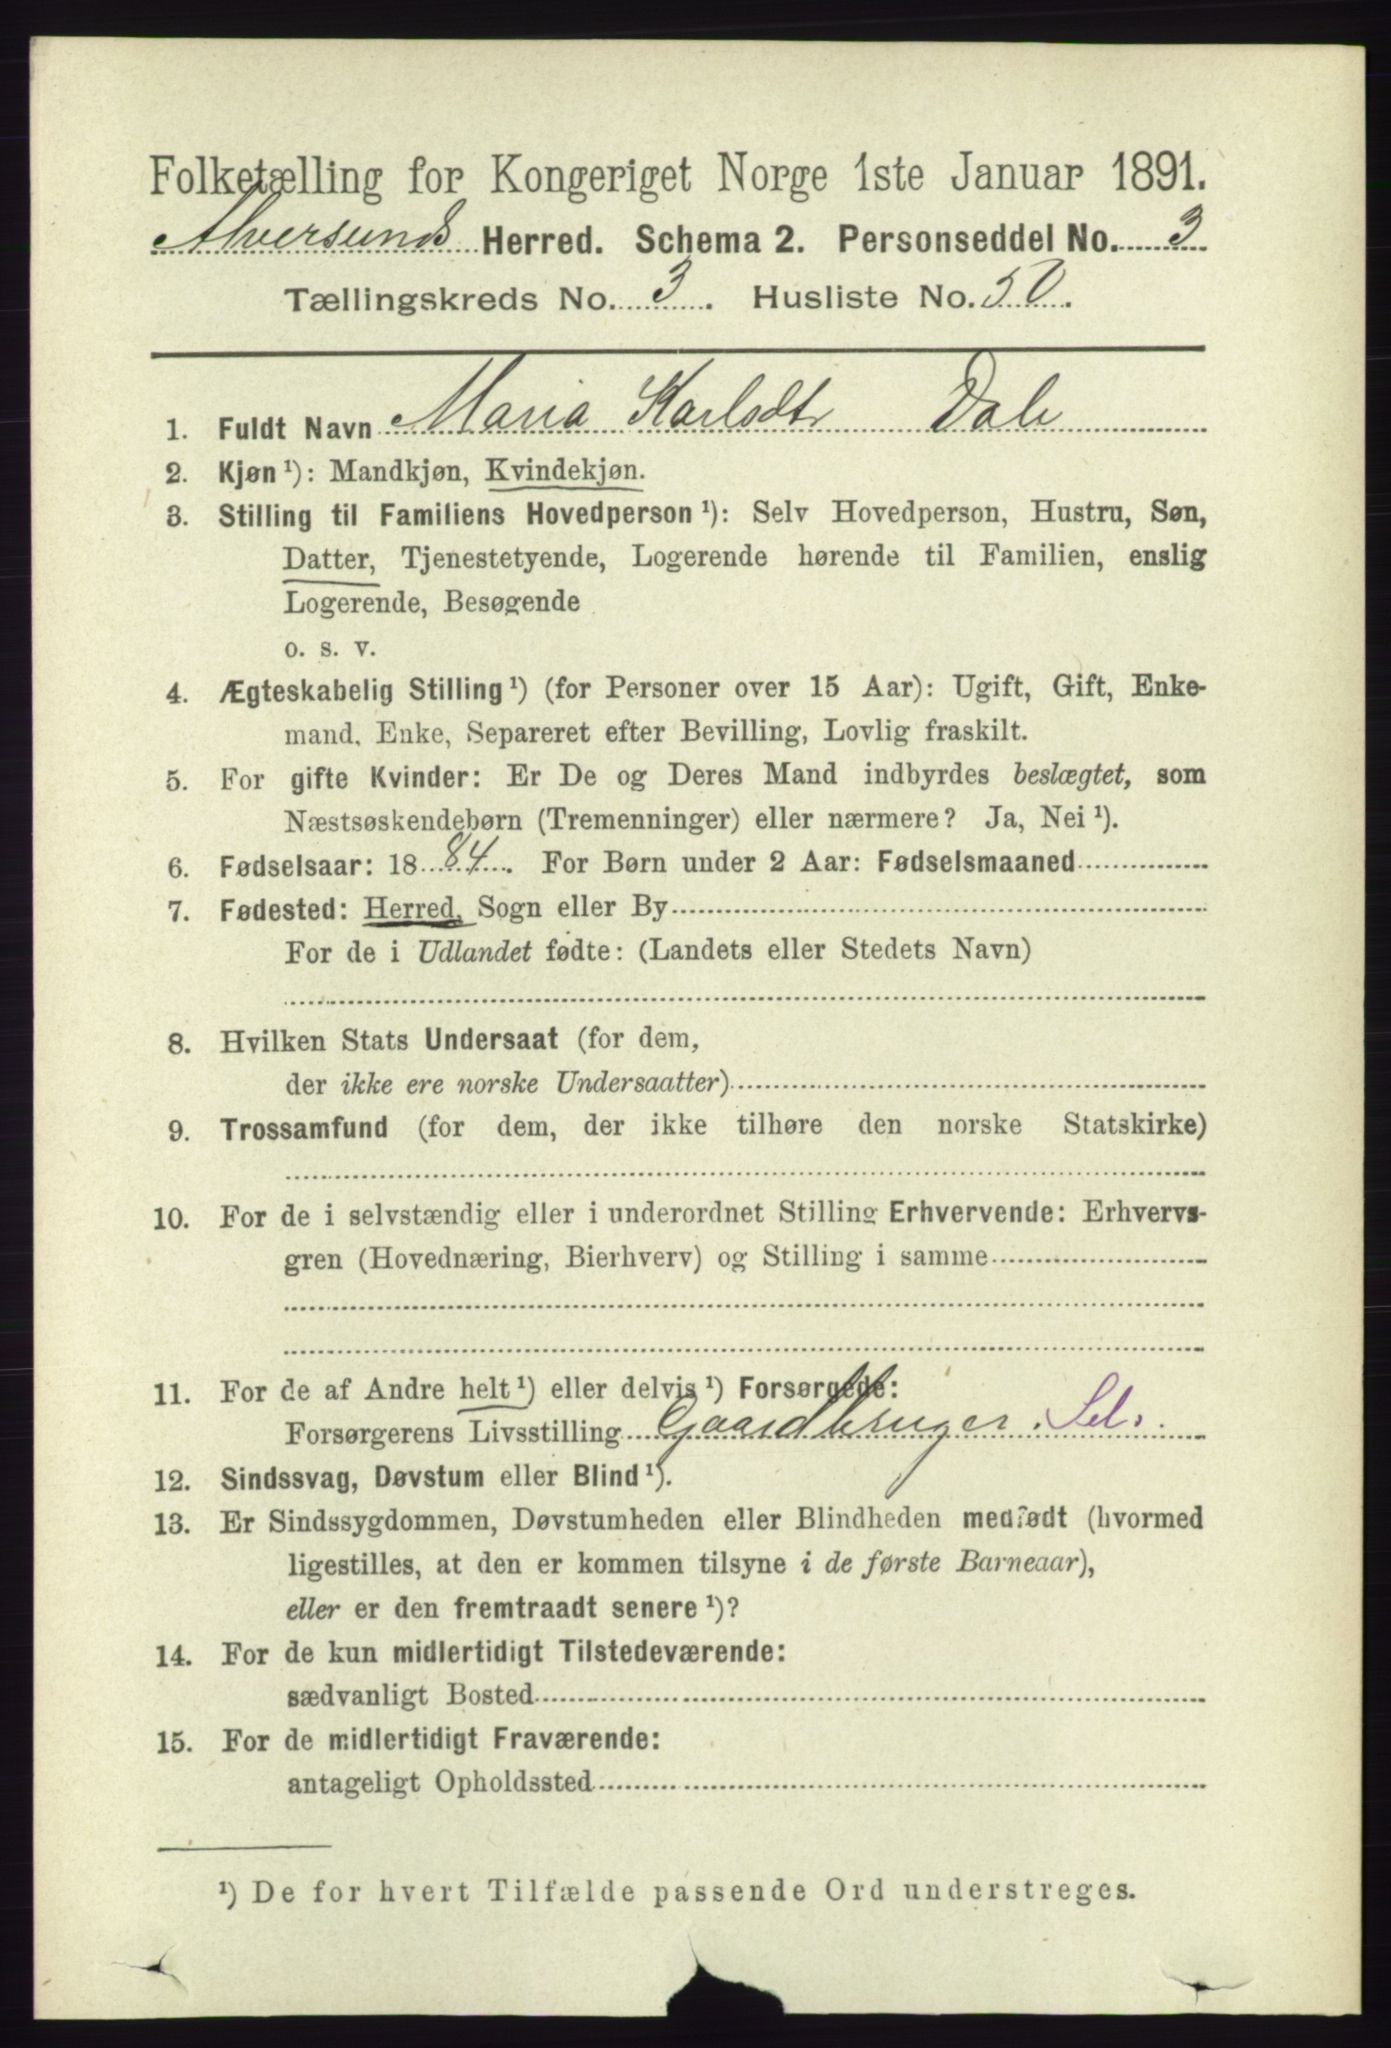 Folketælling for Kongeriget Norge 1ste Januar 1891.
Alversunds Herred. Schema 2. Personseddel No. 3
Tællingskreds No. 3. Husliste No. 50.
1. Fuldt Navn Maria Karlsdtr Dale
2. Kjøn ¹): Mandkjøn, Kvindekjøn.
3. Stilling til Familiens Hovedperson ¹): Selv Hovedperson, Hustru, Søn,
Datter, Tjenestetyende, Logerende hørende til Familien, enslig
Logerende, Besøgende
o. s. v.
4. Ægteskabelig Stilling ¹) (for Personer over 15 Aar): Ugift, Gift, Enke-
mand, Enke, Separeret efter Bevilling, Lovlig fraskilt.
5. For gifte Kvinder: Er De og Deres Mand indbyrdes beslægtet, som
Næstsøskendebørn (Tremenninger) eller nærmere? Ja, Nei ¹).
6. Fødselsaar: 1884. For Børn under 2 Aar: Fødselsmaaned
7. Fødested: Herred, Sogn eller By
For de i Udlandet fødte: (Landets eller Stedets Navn)
8. Hvilken Stats Undersaat (for dem,
der ikke ere norske Undersaatter)
9. Trossamfund (for dem, der ikke tilhøre den norske Statskirke)
10. For de i selvstændig eller i underordnet Stilling Erhvervende: Erhvervs-
gren (Hovednæring, Bierhverv) og Stilling i samme
11. For de af Andre helt ¹) eller delvis ¹) Forsørgede:
Forsørgerens Livsstilling Gaardbruger. Sel.
12. Sindssvag, Døvstum eller Blind ¹).
13. Er Sindssygdommen, Døvstumheden eller Blindheden medfødt (hvormed
ligestilles, at den er kommen tilsyne i de første Barneaar),
eller er den fremtraadt senere ¹)?
14. For de kun midlertidigt Tilstedeværende:
sædvanligt Bosted
15. For de midlertidigt Fraværende:
antageligt Opholdssted
¹) De for hvert Tilfælde passende Ord understreges.